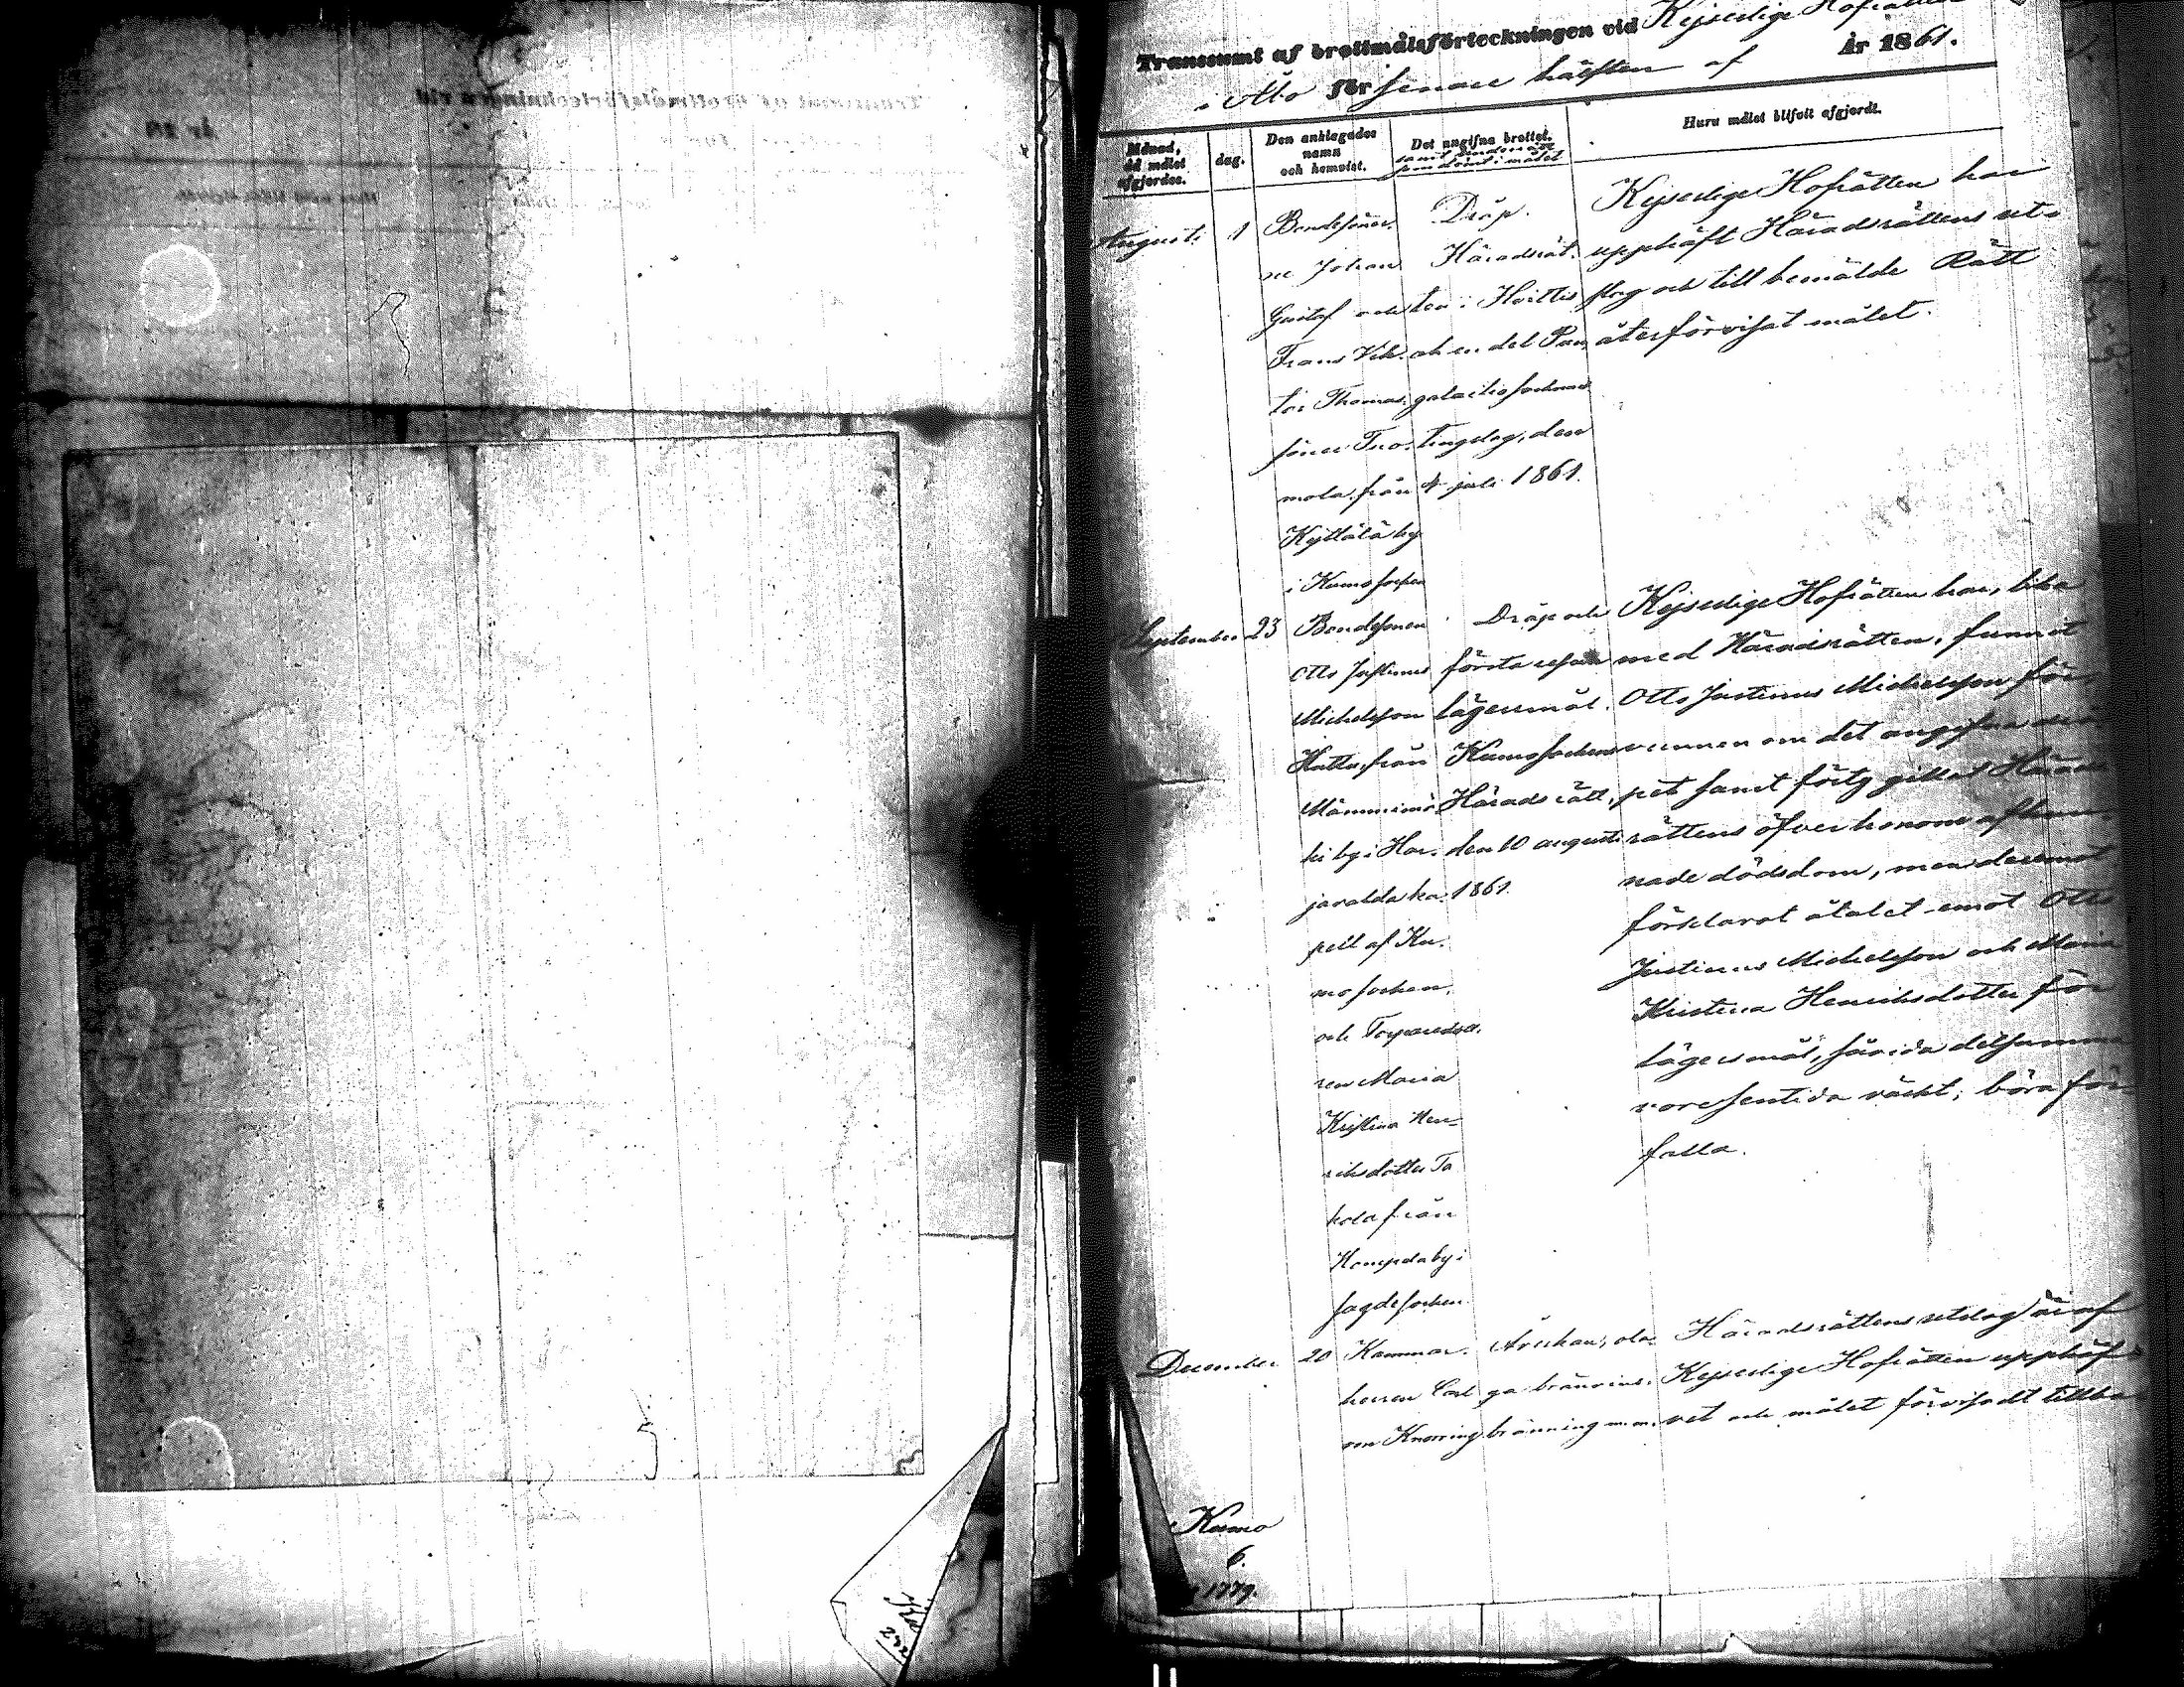 Transsumt af brottmålsförteckningen vid Kejserlige Hofrätten
i Åbo för senare hälften af År 1861.
Månad, då målet afgjordes.
dag.
Den anklagades namn och hemvist.
Det angifna brottet, samt
Huru målet blifvit afgjordt.
Augusti 1
Bondesöner-
ne Johan
Gustaf och
Frans Vik-
tor Thomas-
söner Tuo-
mola från
Kyttälä by
i Kumo socken
Dråp.
Häradsrät-
ten i Hvittis
och en del Pun-
galaitio sockens
tingslag, den
4 juli 1861.
Kejserlige Hofrätten har
upphäft Häradsrättens uts-
slag och till bemälde Rätt
återförvisat målet.
September 23
Bondesonen
Otto Justinus
Michelsson
Hatta, från
by i Har-
javalda ka-
pell af Ku-
mo socken,
och
ren Maria
Kristina Hen-
riksdotter
från
by i
sagde socken.
Dråp och
första resan
lägersmål.
Kumo sockens
Häradsrätt,
den 10 augusti
1861.
Kejserlige Hofrätten har, lika
med Häradsrätten, funnit
Otto Justinus Michelsson för-
vunnen om det angifna drå-
pet samt förty gillat Härads-
rättens öfver honom afkun-
nade dödsdom, men deremot
förklarat åtalet emot Otto
Justinus Michelsson och Maria
Kristina Henriksdotter för
lägersmål, såvida detsamma
vore sent väckt, böra för-
falla.
December 20
Kammar-
herren Carl
von Knorring
Åverkan, olo-
ga brännvins-
bränning m.m.
Häradsrättens utslag är af
Kejserlige Hofrätten upphäf-
vet och målet förvisadt tillba-
Kumo
6.
1779.